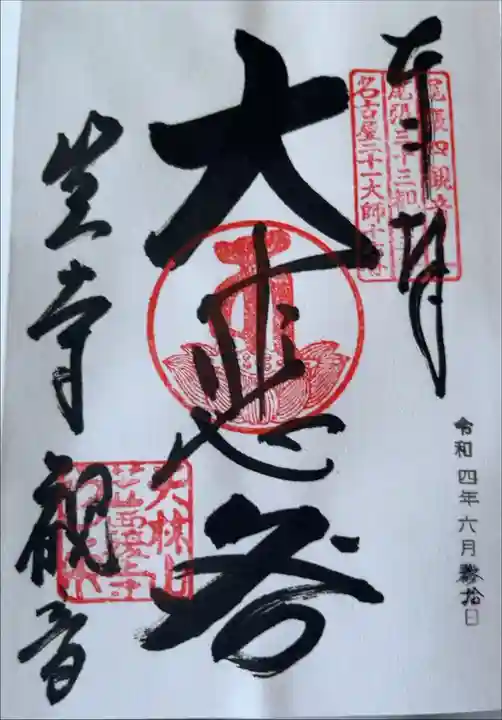 奉拝
尾張四観音
尾張三十三観
名古屋二十一大師十
大悲閣
天林山
笠覆寺
笠寺観音
令和四年六月參拾日